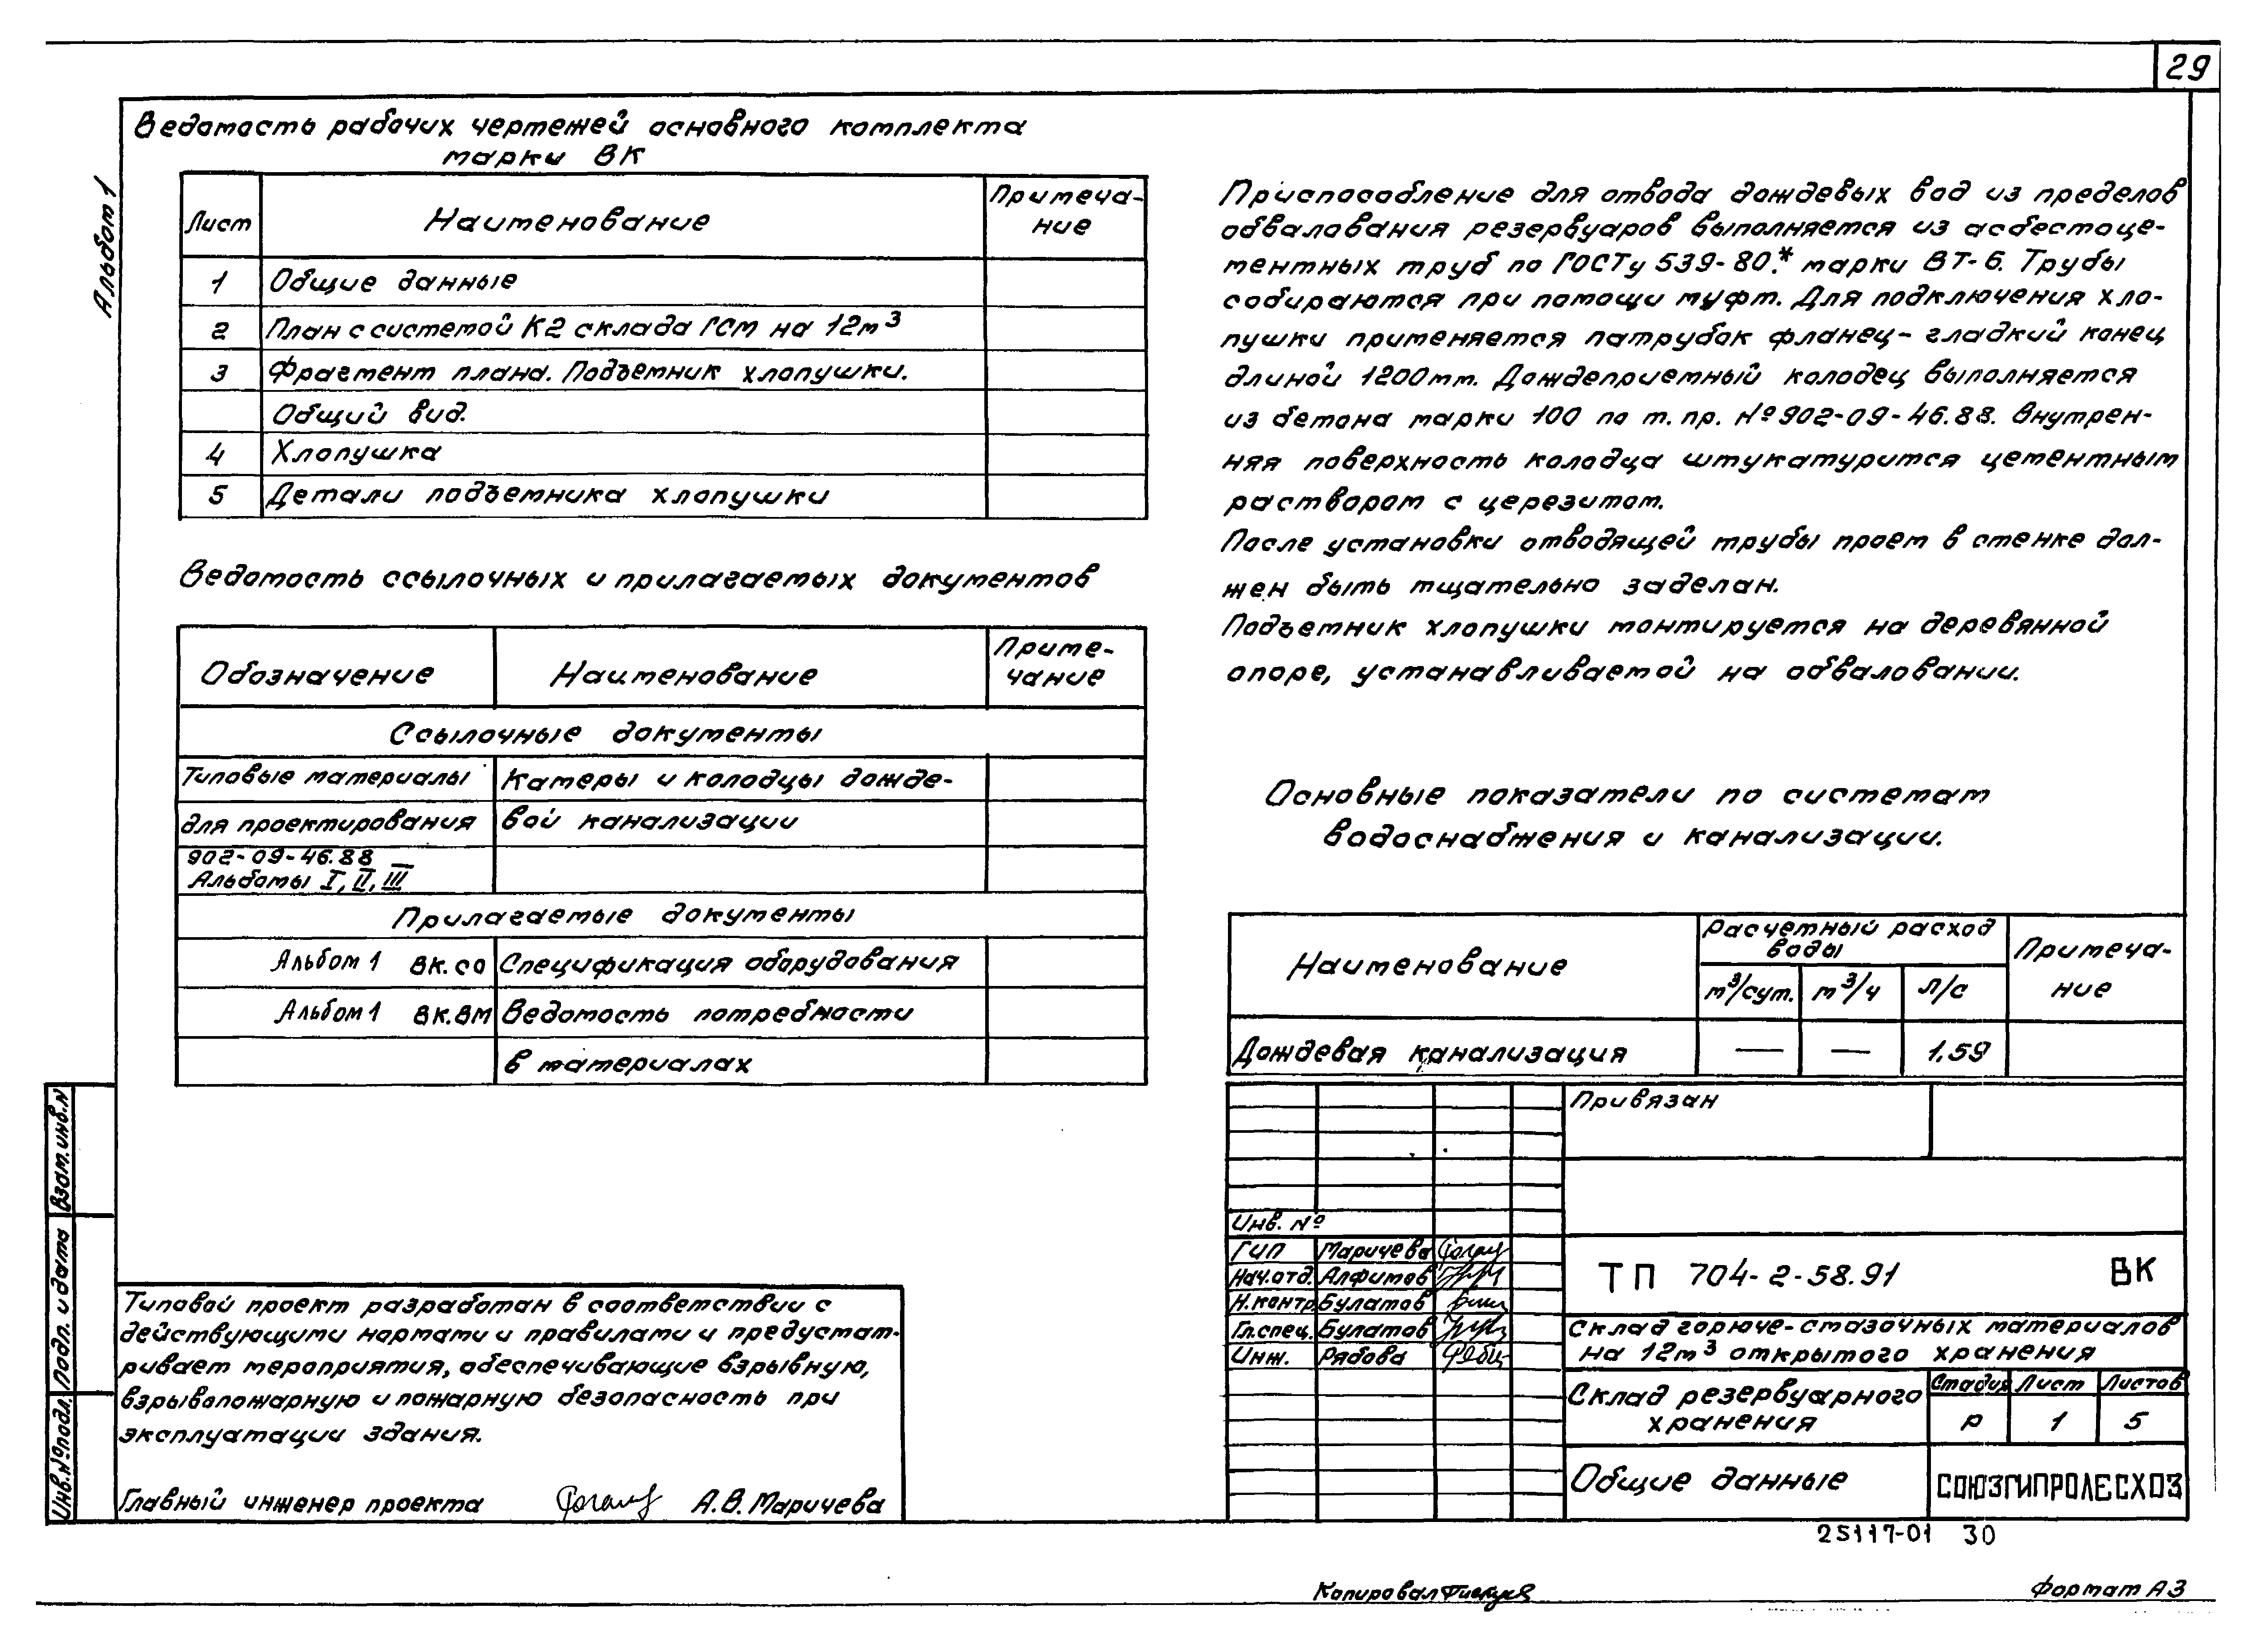 29
Альбом 1
Ведомость рабочих чертежей основного комплекта
марки ВК
Лист Наименование Примеча-
ние
1 Общие данные
2 План с системой К2 склада ГСМ на 12м³
3 Фрагмент плана. Подъемник хлопушки.
Общий вид.
4 Хлопушка
5 Детали подъемника хлопушки
Ведомость ссылочных и прилагаемых документов
Обозначение Наименование Приме-
чание
Ссылочные документы
Типовые материалы Камеры и колодцы дожде-
для проектирования вой канализации
902-09-46.88
Альбомы I, II, III
Прилагаемые документы
Альбом 1 ВК.СО Спецификация оборудования
Альбом 1 ВК.ВМ Ведомость потребности
в материалах
Типовой проект разработан в соответствии с
действующими нормами и правилами и предусмат-
ривает мероприятия, обеспечивающие взрывную,
взрывопожарную и пожарную безопасность при
эксплуатации здания.
Главный инженер проекта А.В. Маричева
Взам. инв. N
Подп. и дата
Инв. № подл.
Приспособление для отвода дождевых вод из пределов
обвалования резервуаров выполняется из асбестоце-
ментных труб по ГОСТу 539-80.* марки ВТ-6. Трубы
собираются при помощи муфт. Для подключения хло-
пушки применяется патрубок фланец-гладкий конец
длиной 1200мм. Дождеприемный колодец выполняется
из бетона марки 100 по т. пр. №902-09-46.88. Внутрен-
няя поверхность колодца штукатурится цементным
раствором с церезитом.
После установки отводящей трубы проем в стенке дол-
жен быть тщательно заделан.
Подъемник хлопушки монтируется на деревянной
опоре, устанавливаемой на обваловании.
Основные показатели по системам
водоснабжения и канализации.
Наименование Расчетный расход
воды Примеча-
ние
м³/сут. м³/ч л/с
Дождевая канализация — — 1.59
Привязан
Инв. №
ГИП Маричева
Нач.отд. Алфимов
Н.контр. Булатов
Гл.спец. Булатов
Инж. Рябова
ТП 704-2-58.91 ВК
Склад горюче-смазочных материалов
на 12м³ открытого хранения
Склад резервуарного
хранения
Стадия Лист Листов
Р 1 5
Общие данные
СОЮЗГИПРОЛЕСХОЗ
25117-01 30
Копировал
Формат А3